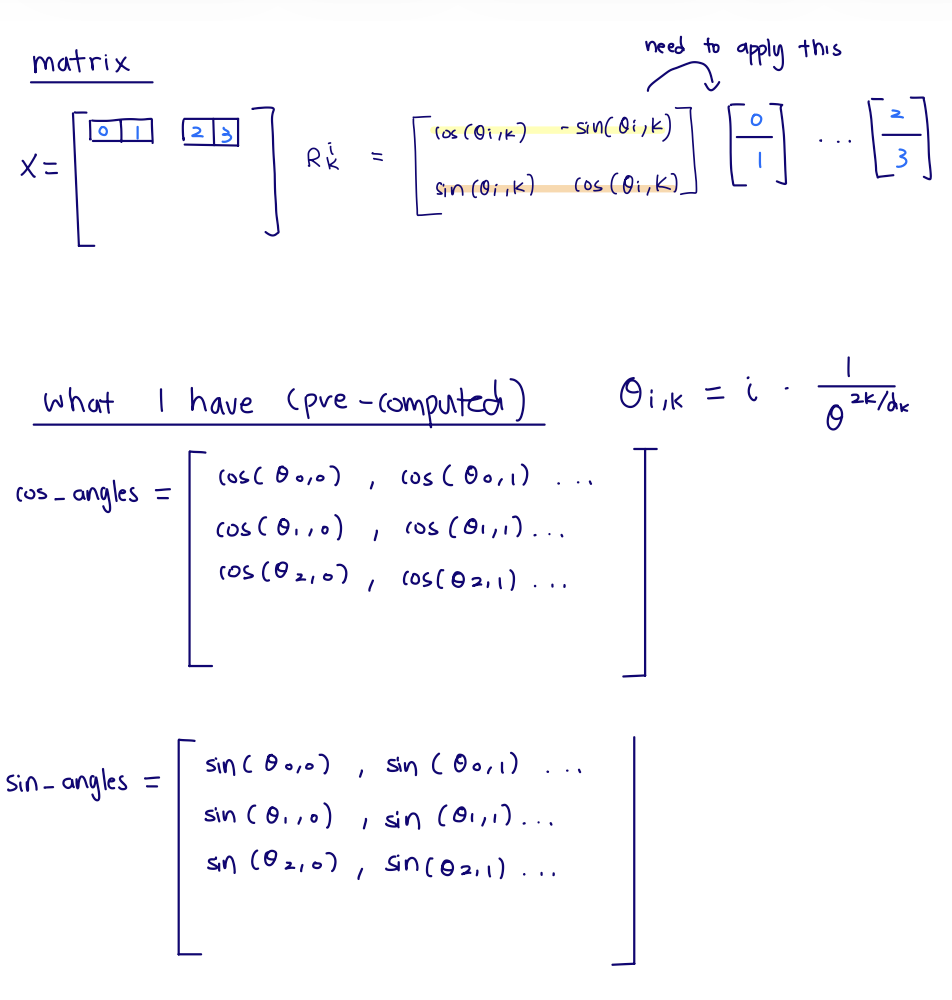 need to apply this
matrix
X = [ 0 1 2 3 ] R_k^i = [ cos(θi,k) - sin(θi,k) sin(θi,k) cos(θi,k) ] [ 0 1 ] ... [ 2 3 ]
what I have (pre-computed) θi,k = i · 1 / θ^2k/dk
cos_angles = [ cos(θ0,0) , cos(θ0,1) ...
cos(θ1,0) , cos(θ1,1) ...
cos(θ2,0) , cos(θ2,1) ... ]
sin_angles = [ sin(θ0,0) , sin(θ0,1) ...
sin(θ1,0) , sin(θ1,1) ...
sin(θ2,0) , sin(θ2,1) ... ]